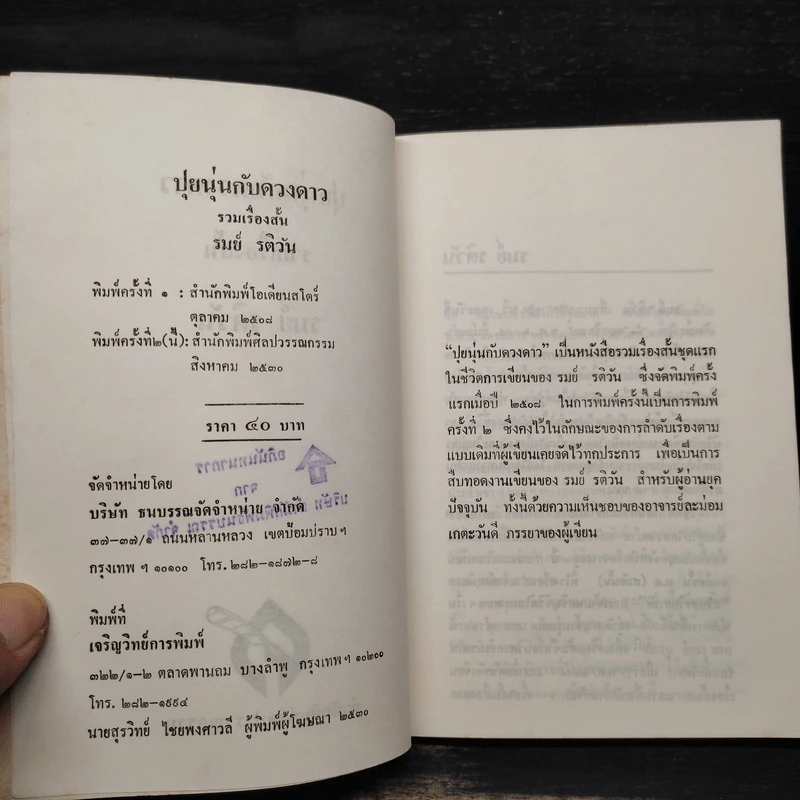 ปุยนุ่นกับดวงดาว
รวมเรื่องสั้น
รมย์ รติวัน
พิมพ์ครั้งที่ ๑ : สำนักพิมพ์โอเดียนสโตร์
ตุลาคม ๒๕๐๘
พิมพ์ครั้งที่๒(นี้): สำนักพิมพ์ศิลปวรรณกรรม
สิงหาคม ๒๕๓๐
ราคา ๔๐ บาท
อภินันทนาการ
จาก
จัดจำหน่ายโดย
บริษัท ธนบรรณจัดจำหน่าย จำกัด
๓๗-๓๗/๑ ถนนหลานหลวง เขตป้อมปราบฯ
กรุงเทพ ฯ ๑๐๑๐๐ โทร. ๒๘๒-๑๘๗๒-๘
พิมพ์ที่
เจริญวิทย์การพิมพ์
๓๒๒/๑-๒ ตลาดพานถม บางลำพู กรุงเทพฯ ๑๐๒๐๐
โทร. ๒๘๒-๑๙๙๔
นายสุรวิทย์ ไชยพงศาวลี ผู้พิมพ์ผู้โฆษณา ๒๕๓๐
“ปุยนุ่นกับดวงดาว” เป็นหนังสือรวมเรื่องสั้นชุดแรก
ในชีวิตการเขียนของ รมย์ รติวัน ซึ่งจัดพิมพ์ครั้ง
แรกเมื่อปี ๒๕๐๘ ในการพิมพ์ครั้งนี้เป็นการพิมพ์
ครั้งที่ ๒ ซึ่งคงไว้ในลักษณะของการลำดับเรื่องตาม
แบบเดิมที่ผู้เขียนเคยจัดไว้ทุกประการ เพื่อเป็นการ
สืบทอดงานเขียนของ รมย์ รติวัน สำหรับผู้อ่านยุค
ปัจจุบัน ทั้งนี้ด้วยความเห็นชอบของอาจารย์ละม่อม
เกตะวันดี ภรรยาของผู้เขียน